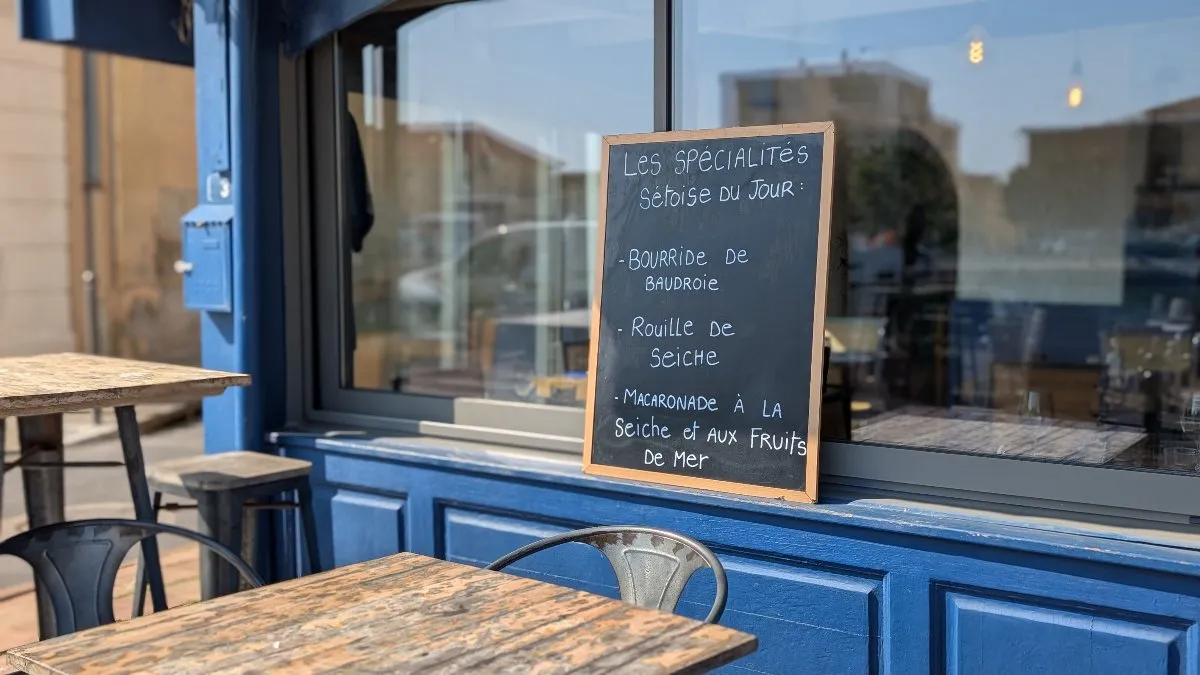 Les SPÉCIALITÉS
Sétoise DU JOUR :
- BOURRIDE De
BAUDROIE
- ROUILLE DE
SEICHE
- MACARONADE À LA
SEICHE et AUX FRUITS
De Mer
3